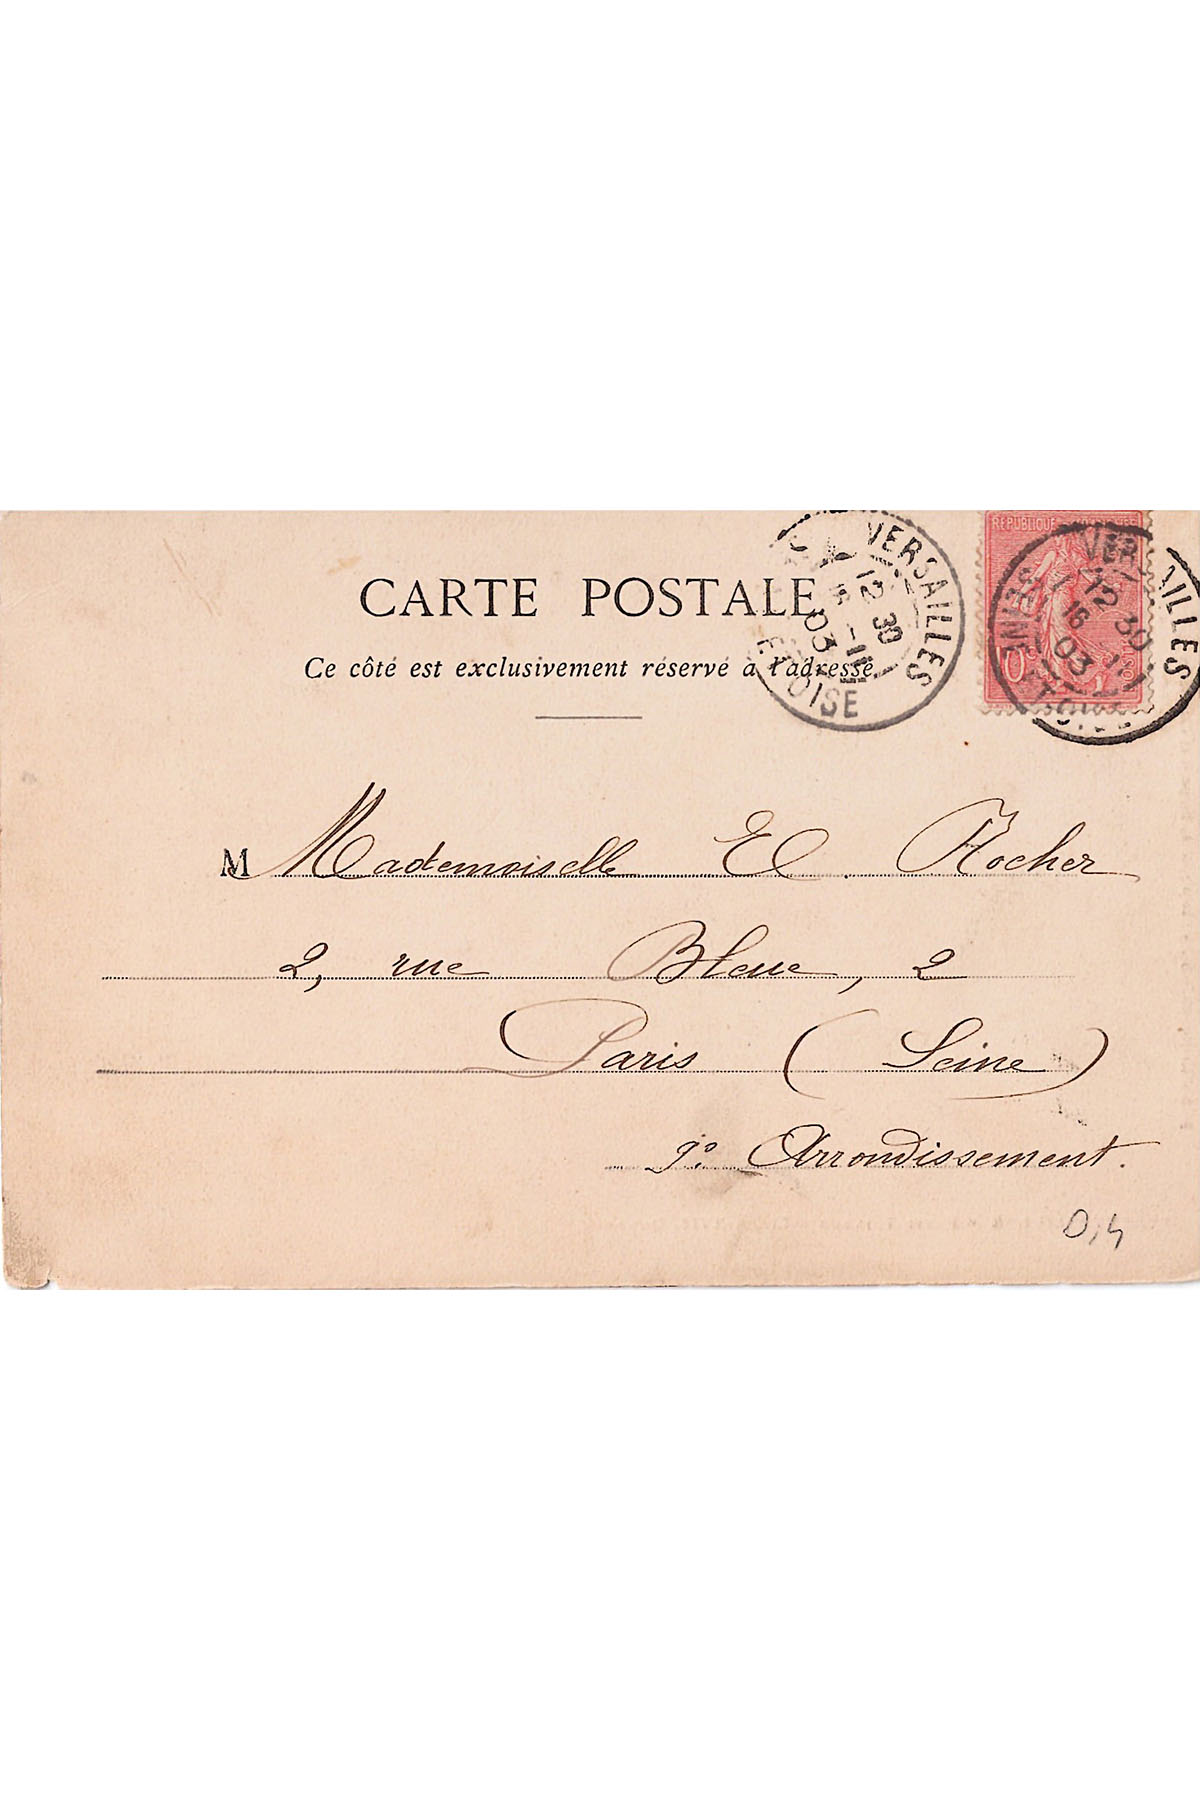 CARTE POSTALE
Ce côté est exclusivement réservé à l'adresse
VERSAILLES
12 30
16 -11
03
ET OISE
RÉPUBLIQUE
VERSAILLES
12 30
16
03
SEINE ET OISE
M Mademoiselle El. Rocher
2, rue Bleue, 2
Paris (Seine)
9e Arrondissement.
0,4